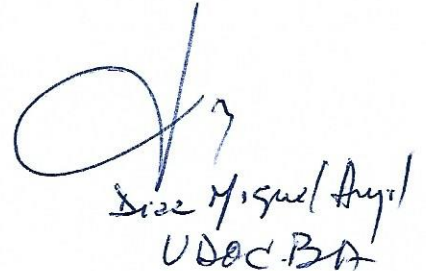 Diaz Miguel Angel
UDOCBA